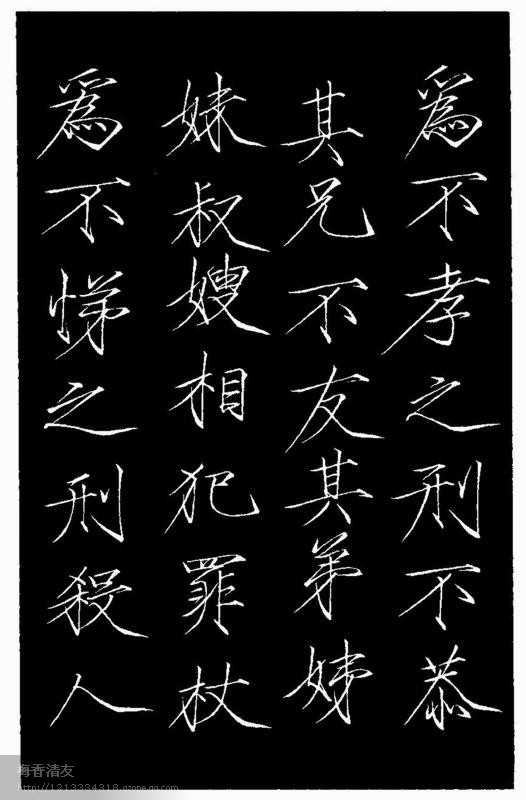 爲不孝之刑不恭
其兄不友其弟姊
妹叔嫂相犯罪杖
爲不悌之刑殺人
梅香清友
http://1213334318.qzone.qq.com